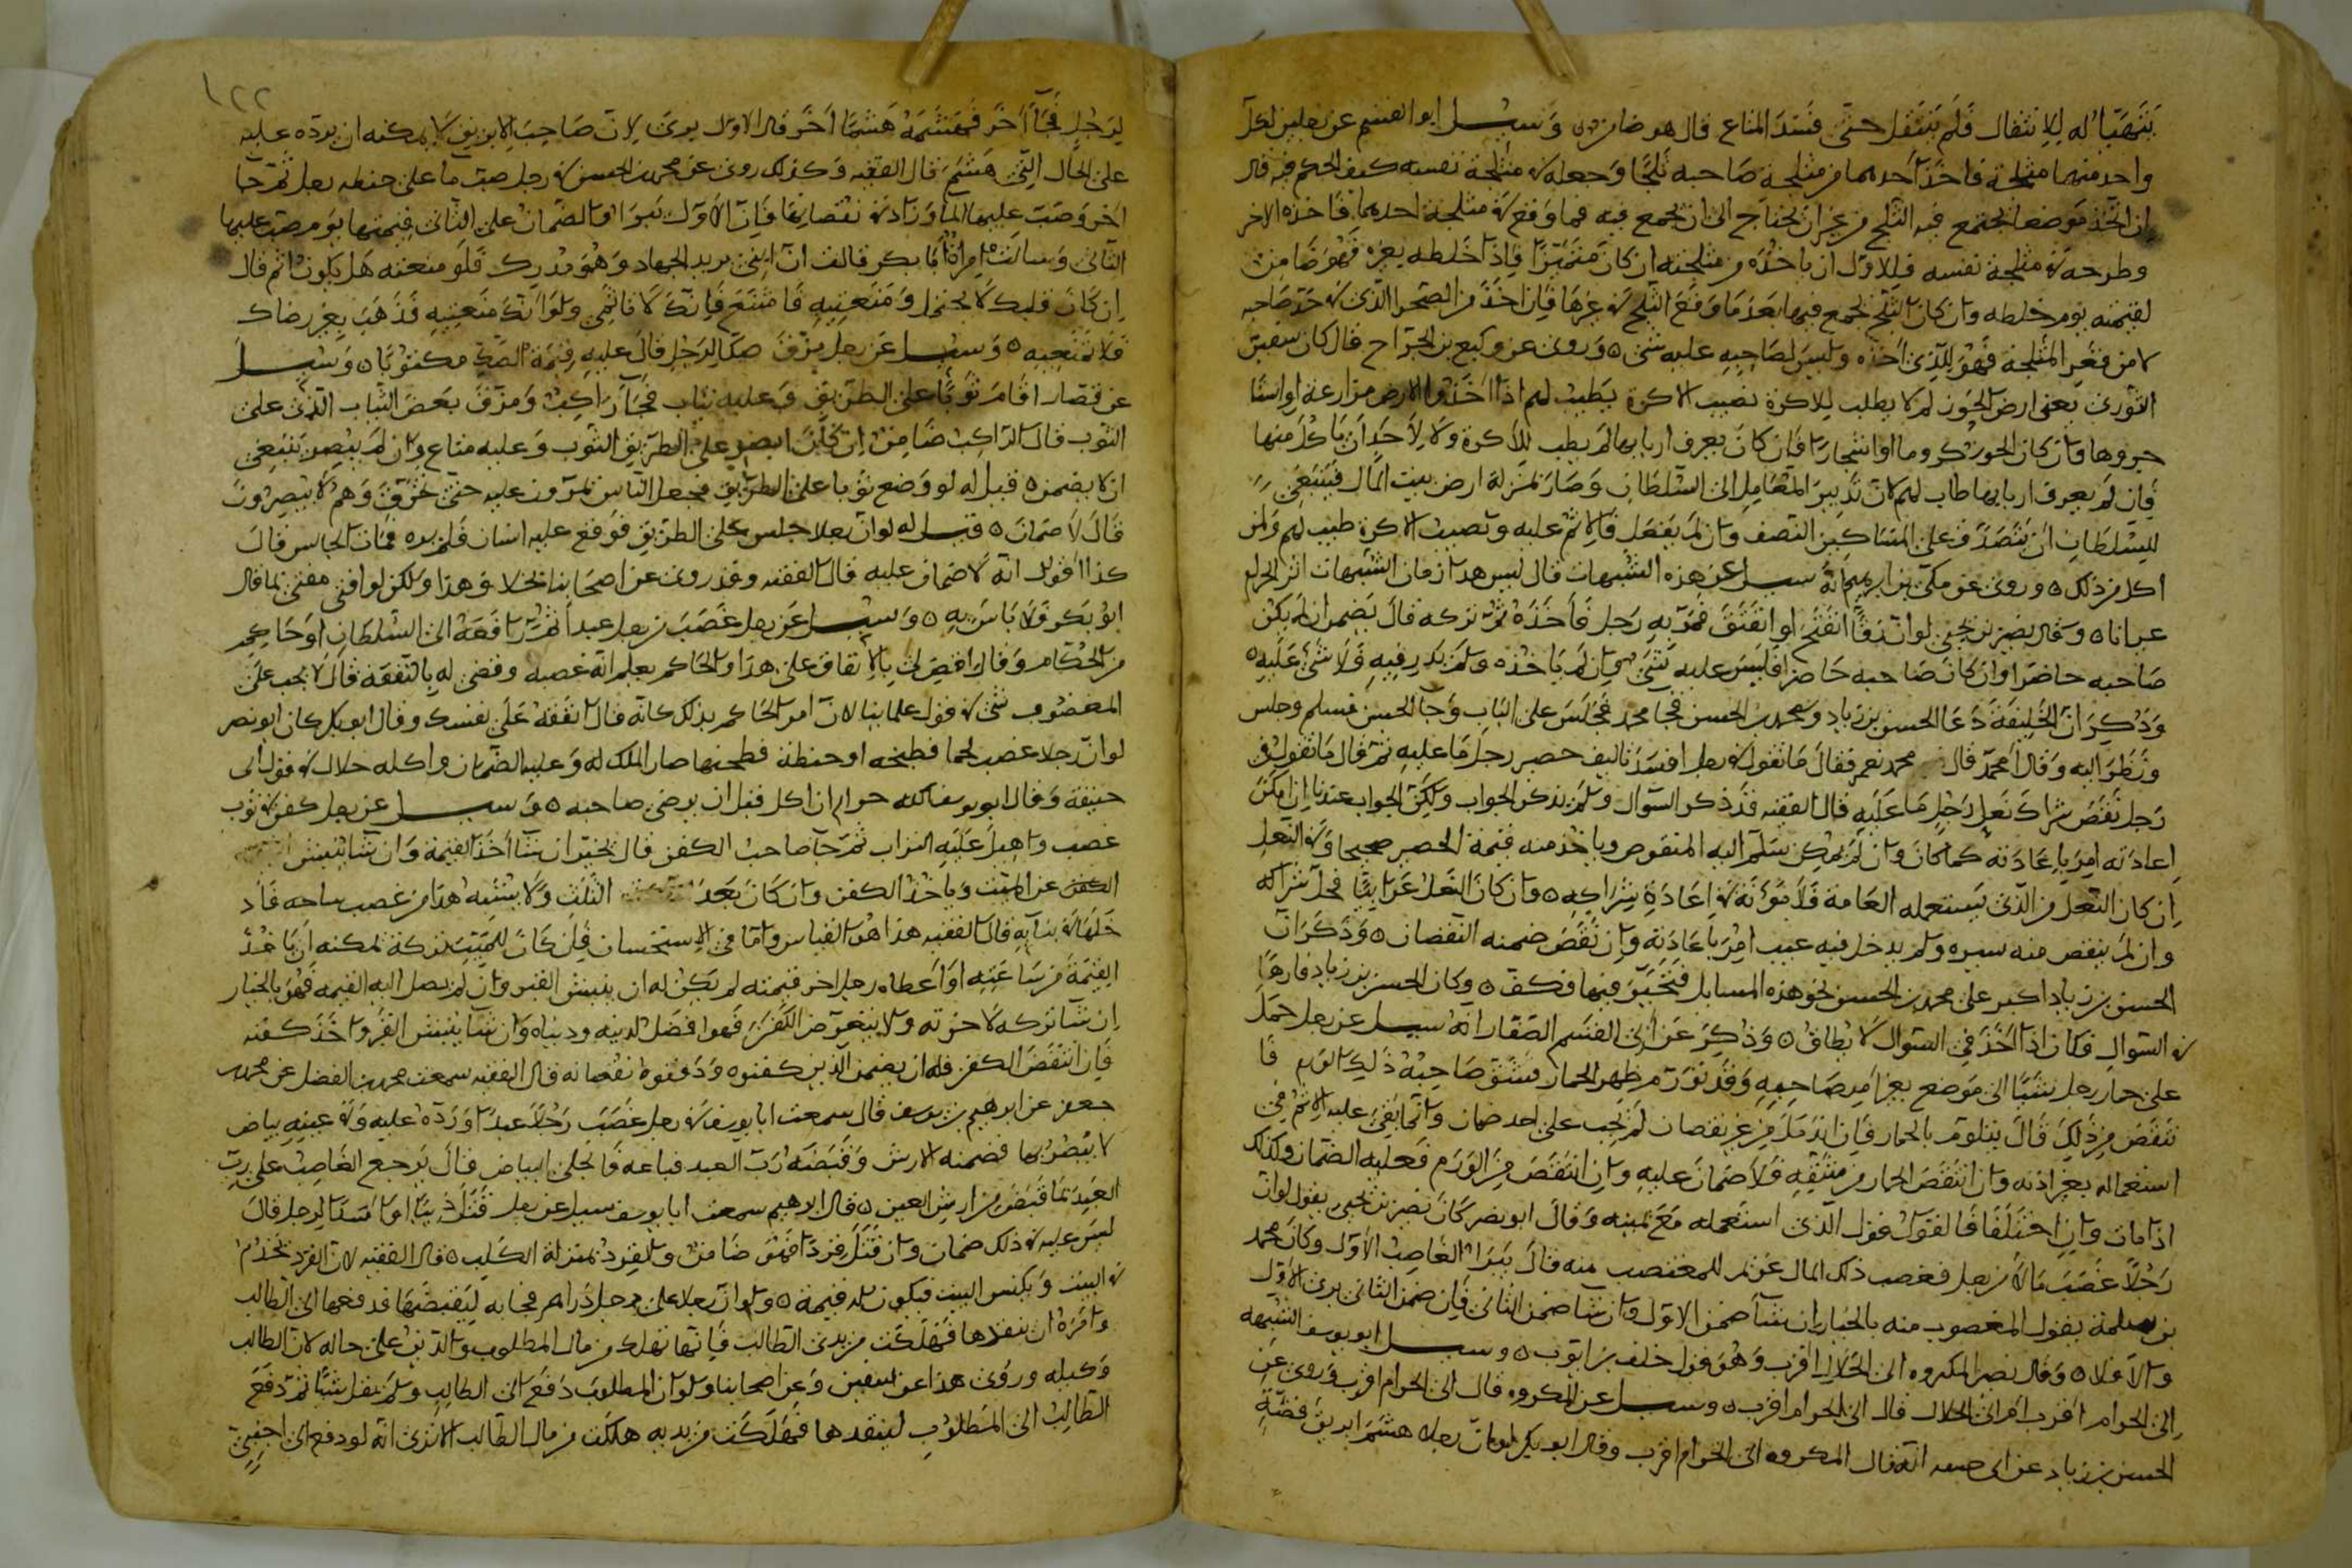 يتهيأ له للانتقال فلم ينتقل حتى فسد المتاع قال هو ضامن ٥ وسئل ابو القسم عن رجلين لكل
واحد منهما مثلجة فاخذ احدهما من مثلجة صاحبه ثلجا وجعله في مثلجة نفسه كيف الحكم فيه قال
ان اتخذ موضعا يجتمع فيه الثلج من غير ان يحتاج الى ان يجمع فيه فما وقع في مثلجة احدهما فاخذه الاخر
وطرحه في مثلجة نفسه فللاول ان ياخذه من مثلجته ان كان متميزا فاذا خلطه بغيره فهو ضامن
لقيمته يوم خلطه وان كان الثلج يجمع فيها بعد ما وقع الثلج في غيرها فان اخذ من الصحرا الذي في حد صاحبه
لا من قعر المثلجة فهو للذي اخذه وليس لصاحبه عليه شي ٥ وروى عن وكيع بن الجراح قال كان سفيان
الثوري يعني ارض الجور لم لا يطلب للاكرة نصيب الاكرة يطيب لهم اذا اخذوا الارض مزارعة او استا
جروها وان كان الجور كروما او اشجارا فان كان يعرف اربابها لم يطب للاكرة ولا لاحد ان ياكل منها
فان لم يعرف اربابها طاب لهم لان تدبير المتعامل الى السلطان وصار بمنزلة ارض بيت المال فينبغي
للسلطان ان يتصدق على المساكين النصف وان لم يفعل فالاثم عليه ونصيب الاكرة طيب لهم ولمن
اكل من ذلك ٥ وروى عن مكي بن ابرهيم انه سئل عن هذه الشبهات قال ليس هذا زمان الشبهات اتر الحرام
عيانا ٥ وقال نصر بن يحيى لو ان زقا انفتح او انفتق فمر به رجل فاخذه ثم تركه قال يضمن ان لم يكن
صاحبه حاضرا وان كان صاحبه حاضرا فليس عليه شي وان لم ياخذه ولم يدن فيه فلا شي عليه ٥
وذكر ان الخليفة دعا الحسن بن زياد ومحمد بن الحسن فجا محمد فجلس على الباب وجا الحسن فسلم وجلس
ونظر اليه وقال محمد قال محمد نعم فقال ما تقول في رجل افسد تاليف حصير رجل ما عليه ثم قال ما تقول في
رجل نقض شراك نعل رجل ما عليه قال الفقيه قد ذكر السوال ولم يذكر الجواب ولكن الجواب عندنا ان امكن
اعادته امر باعادته كما كان وان لم يمكن سلم اليه المنقوص وياخذ منه قيمة الحصير صحيحا وفي النعل
ان كان النعل من الذي يستعمله العامة فلا مؤنة في اعادة شراكه ٥ وان كان النعل عربيا فحل شراكه
وان لم ينقص منه سيره ولم يدخل فيه عيب امر باعادته وان نقص ضمنه النقصان ٥ وذكر ان
الحسن بن زياد اكبر على محمد بن الحسن نحو هذه المسايل فتحير فيها فكف ٥ وكان الحسن بن زياد فارها
في السوال فكان اذا اخذ في السوال لا يطاق ٥ وذكر عن ابي القسم الصفار انه سئل عن رجل حمل
على حمار رجل شيئا الى موضع بغير امر صاحبه وقد تورم ظهر الحمار فشق صاحبه ذلك الورم فا
نتقص من ذلك قال يتلوم بالحمار فان اندمل من غير نقصان لم يجب على احد ضمان وانما بقي عليه الاثم في
استعماله بغير اذنه وان انتقص الحمار من شقه فلا ضمان عليه وان انتقص من الورم فعليه الضمان وكذلك
اذا مات وان اختلفا فالقول قول الذي استعمله مع يمينه وقال ابو نصر كان نصر بن يحيى يقول لو ان
رجلا غصب مالا من رجل فغصب ذلك المال غريم للمغتصب منه قال يبرا الغاصب الاول وكان محمد
بن سلمة يقول المغصوب منه بالخيار ان شا ضمن الاول وان شا ضمن الثاني فان ضمن الثاني برى الاول
والا فلا ٥ وقال نصر المكروه الى الحلال اقرب وهو قول خلف بن ايوب ٥ وسئل ابو يوسف الشبهه
الى الحرام اقرب ام الى الحلال قال الى الحرام اقرب ٥ وسئل عن المكروه قال الى الحرام اقرب وروى عن
الحسن بن زياد عن ابي حنيفه انه قال المكروه الى الحرام اقرب وقال ابو بكر لو ان رجلا هشم ابريق فضة
١٢٢
لرجل فجا اخر فهشمه هشما اخر قال الاول برى لان صاحب الابريق لا يمكنه ان يرده عليه
على الحال التي هشم قال الفقيه وكذلك روى عن محمد بن الحسن في رجل صب ما على حنطه رجل ثم جا
اخر وصب عليها الما وزاد في نقصانها فان الاول يبرا والضمان على الثاني قيمتها يوم صب عليها
الثاني وسالت امراة ابا بكر فقالت ان ابني يريد الجهاد وهو مدرك فلو منعته هل يكون اثم قال
ان كان قلبك لا يحتمل ومنعتيه فامتنع فانك لا تاثمي ولو انك منعتيه فذهب بغير رضاك
فلا تتبعيه ٥ وسئل عن رجل مزق صكا لرجل قال عليه قيمة الصك مكتوبا ٥ وسئل
عن قصار اقام ثوبا على الطريق وعليه ثياب فجا راكب ومزق بعض الثياب الذي على
الثوب قال الراكب ضامن ان كان ابصر على الطريق الثوب وعليه متاع وان لم يبصر ينبغي
ان لا يضمن ٥ قيل له لو وضع ثوبا على الطريق فجعل الناس يمرون عليه حتى تخرق وهم لا يبصرون
قال لا ضمان ٥ قيل له لو ان رجلا جلس على الطريق فوقع عليه انسان فلم يره فمات الجالس قال
كذا اقول انه لا ضمان عليه قال الفقيه وقد روى عن اصحابنا بخلاف هذا ولكن لو افتى مفتي بما قال
ابو بكر فلا باس به ٥ وسئل عن رجل غصب من رجل عبدا ثم رافعه الى السلطان او حاكم
من الحكام وقال اقض لي بالانفاق على هذا والحاكم يعلم انه غصبه وقضى له بالنفقة قال لا يجب على
المغصوب شي في قول علمائنا لان امر الحاكم بذلك كانه قال انفقه على نفسك وقال ابو بكر كان ابو نصر
لو ان رجلا غصب لحما فطبخه او حنطة فطحنها صار الملك له وعليه الضمان واكله حلال في قول ابي
حنيفة وقال ابو يوسف اكله حرام ان اكل قبل ان يرضى صاحبه ٥ وسئل عن رجل كفن في ثوب
غصب واهيل عليه التراب ثم جا صاحب الكفن قال يخير ان شا اخذ القيمة وان شا ينبش
الكفن عن الميت وياخذ الكفن وان كان بعد الثلث ولا يشبه هذا من غصب ساحه فاد
خلها في بنايه قال الفقيه هذا هو القياس واما في الاستحسان فان كان للميت تركة يمكنه ان ياخذ
القيمة من ساعته او اعطاه رجل اخر قيمته لم يكن له ان ينبش القبر وان لم يصل اليه القيمه فهو بالخيار
ان شا تركه لاخرته ولا يتعرض الكفن فهو افضل لدينه ودنياه وان شا ينبش القبر واخذ كفنه
فان انتقض الكفن فله ان يضمن الذين كفنوه ودفنوه نقصانه قال الفقيه سمعت محمد بن الفضل عن محمد بن
جعفر عن ابرهيم بن يوسف قال سمعت ابا يوسف في رجل غصب رجلا عبدا ورده عليه وفي عينه بياض
لا يبصر بها فضمنه الارش وقبضه رب العبد فباعه فانجلى البياض قال يرجع الغاصب على رب
العبد بما قبض من ارش العين ٥ قال ابرهيم سمعت ابا يوسف سئل عن رجل قتل ذئبا او اسدا لرجل قال
ليس عليه في ذلك ضمان وان قتل قردا فهو ضامن والقرد بمنزلة الكلب ٥ قال الفقيه لان القرد يخدم
في البيت ويكنس البيت فيكون له قيمة ٥ ولو ان رجلا على رجل دراهم فجا به ليقبضها فدفعها الى الطالب
وامره ان ينقدها فهلكت من يدي الطالب فانها تهلك من مال المطلوب والدين على حاله لان الطالب
وكيله وروى هذا عن سفين وعن اصحابنا ولو ان المطلوب دفع الى الطالب ولم يقل شيئا ثم دفع
الطالب الى المطلوب لينقدها فهلكت من يديه هلكت من مال الطالب الا ترى انه لو دفع الى اجنبي